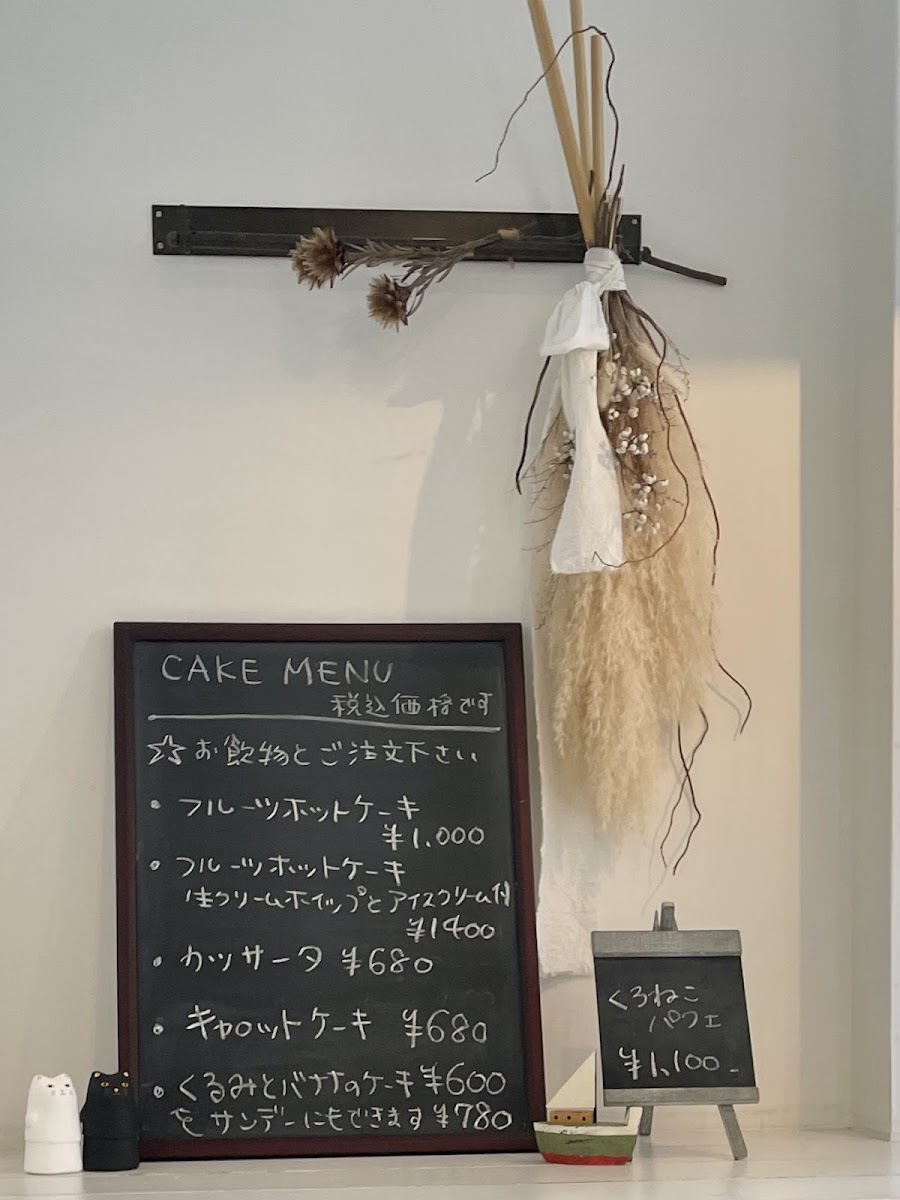 CAKE MENU
税込価格です
☆お飲物とご注文下さい
・フルーツホットケーキ
¥1,000
・フルーツホットケーキ
生クリームホイップとアイスクリーム付
¥1400
・カッサータ ¥680
・キャロットケーキ ¥680
・くるみとバナナのケーキ¥600
をサンデーにもできます¥780
くろねこ
パフェ
¥1,100-